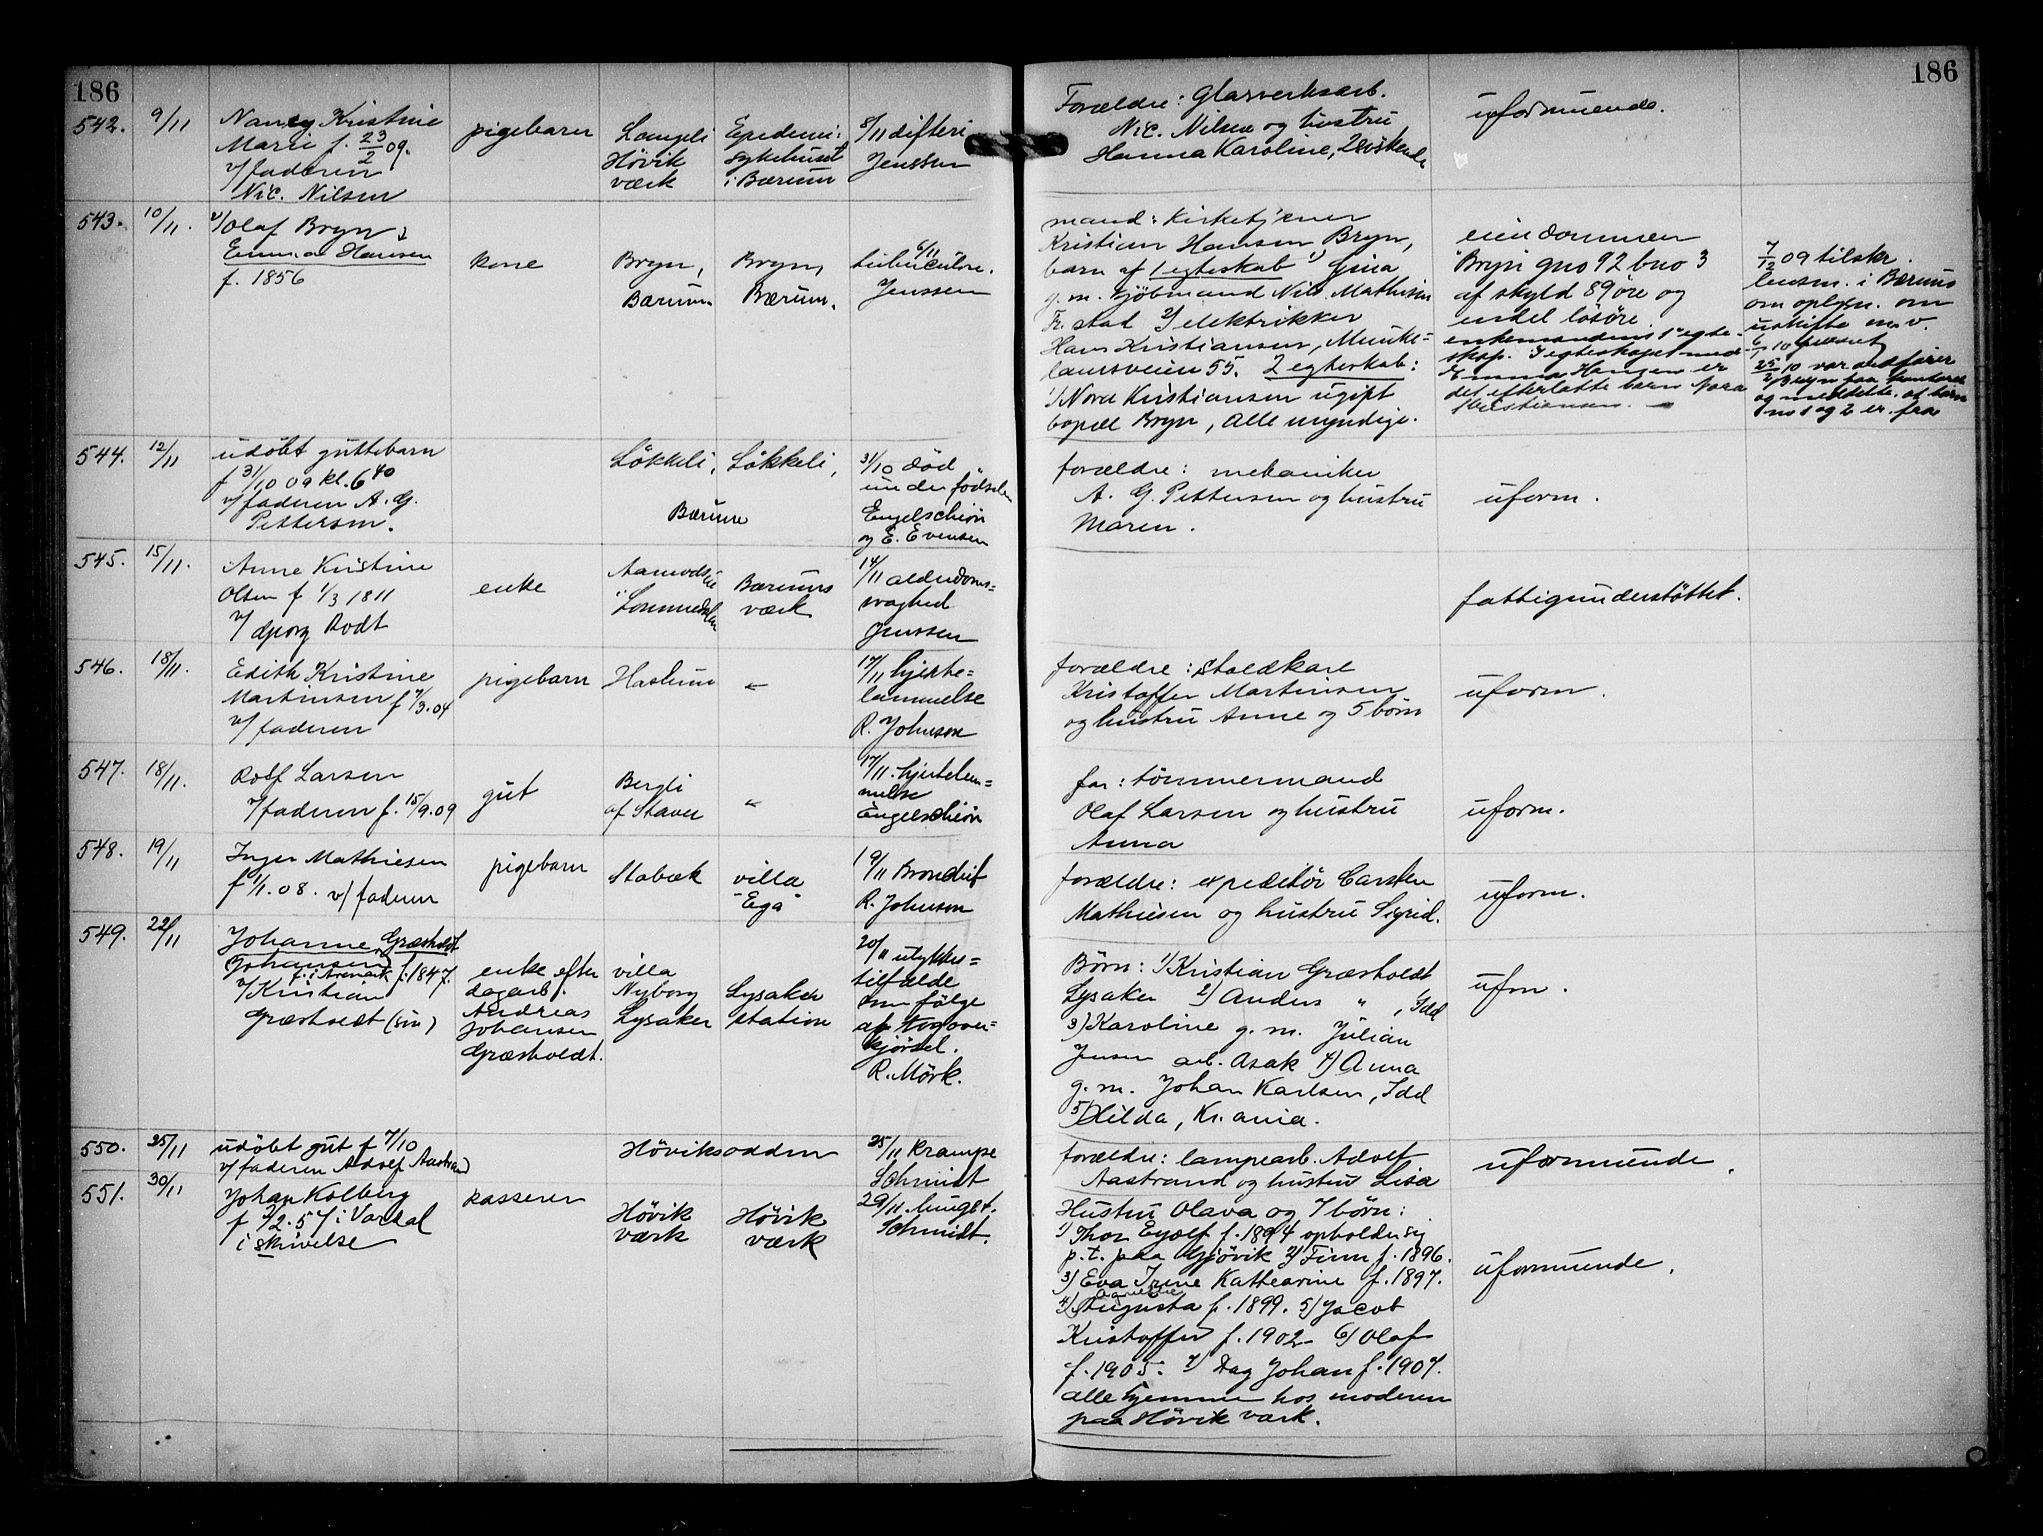 186
186
542.
9/11
Nancy Kristine
Marie f. 23/2 09.
v/ faderen
Nic. Nilsen
pigebarn
Høvik
værk
Epidemi:
sykehuset
i Bærum
8/11 difteri
Jenssen
Forældre: Glasverksarb.
Nic. Nilsen og hustru
Hanna Karoline, 2 søskende
uformuende.
543.
10/11.
v/ Olaf Bryn
Emma Hansen
f. 1856
kone
Bryn,
Bærum.
Bryn,
Bærum.
6/11
tuberculose.
Jenssen
mand: Kirketjener
Kristian Hansen Bryn,
barn af 1 egteskab 1) Gina
g. m. kjøbmand Nils Mathisen
Fr. stad 2) elektrikker
Hans Kristiansen, Munke-
damsveien 55. 2 egteskab:
1) Nora Kristiansen ugift
bopæl Bryn, alle myndige.
eiendommen
Bryn gno 92 bno 3
af skyld 89 øre og
endel løsøre
enkemandens 1ste egte-
skap. I egteskapet med
Emma Hansen er
det efterlatte barn Nora
Kristiansen.
7/12 09 tilskr.
lensm. i Bærum
om oplysn. om
uskifte m. v.
6/1 10 purret
25/ 10 var
Bryn paa kontoret
og meddelte at barn
no 1 og 2 er fra
544.
12/11
udøbt guttebarn
f 31/10 09 kl. 6 40
v/ faderen A. G.
Pettersen.
Løkkeli,
Løkkeli,
Bærum
31/10 død
under fødselen
Engelschiøn
og E. Evensen
forældre: mekaniker
A. G. Pettersen og hustru
Maren.
uform.
545.
15/11.
Anne Kristine
Olsen f 1/3 1811
v/ Georg Rodt
enke
i Lommedalen
Bærums
værk
14/11 alderdoms-
svaghed
Jenssen
fattigunderstøttet.
546.
18/11.
Edith Kristine
Martinsen f 7/3.04
v/ faderen
pigebarn
Haslum
"
17/11 hjerte-
lammelse
R. Johnson
forældre: staldkarl
Kristoffer Martinsen
og hustru Anne og 5 børn
uform.
547.
18/11.
Rolf Larsen
v/ faderen f. 15/9.09
gut
Bergli
af Staver
"
17/11. hjertelam-
melse
Engelschiøn
far: tømmermand
Olaf Larsen og hustru
Anna
uform.
548.
19/11
Inger Mathiesen
f 1/1.08. v/ faderen
pigebarn
Stabæk
villa
"Ega"
19/11 Brondit
R. Johnson
forældre: expeditør Carsten
Mathiesen og hustru Sigrid.
uform.
549.
22/11
Johanne Græsholdt
Johansen
f. i Aremark f. 1847.
v/ Kristian
Græsholdt (søn)
enke efter
dagarb.
Andreas
Johansen
Græsholdt.
villa
Nyborg
Lysaker
Lysaker
station
20/11 ulykkes-
tilfælde
som følge
af togover-
kjørsel.
R. Mørk.
Børn: 1) Kristian Græsholdt
Lysaker 2) Anders " , Idd
3) Karoline g. m. Julian
Jensen arb. Asak 4) Anna
g. m. Johan Karlsen, Idd
5) Hilda, Kr.ania.
ufm.
550.
25/11
udøbt gut f 7/10
v/ faderen Adolf Aastrand
Høviksodden
25/11 krampe
Schmidt
forældre: lampearb. Adolf
Aastrand og hustru Lisa
uformuende.
551.
30/11
Johan Kolberg
f 7/2.57 i Vardal
i skivelse
kasserer
Høvik
værk
Høvik
værk
29/11. lungbet.
Schmidt.
Hustru Olava og 7 børn:
1) Thor Eyolf f. 1894 opholder sig
p.t. paa Gjøvik 2) Finn f. 1896.
3) Eva Irene Kathearine f. 1897.
4) Augusta f. 1899. 5) Jacob
Kristoffer f. 1902 6) Olaf
f. 1905. 7) Dag Johan f. 1907.
alle hjemme hos moderen
paa Høvik værk.
uformuende.